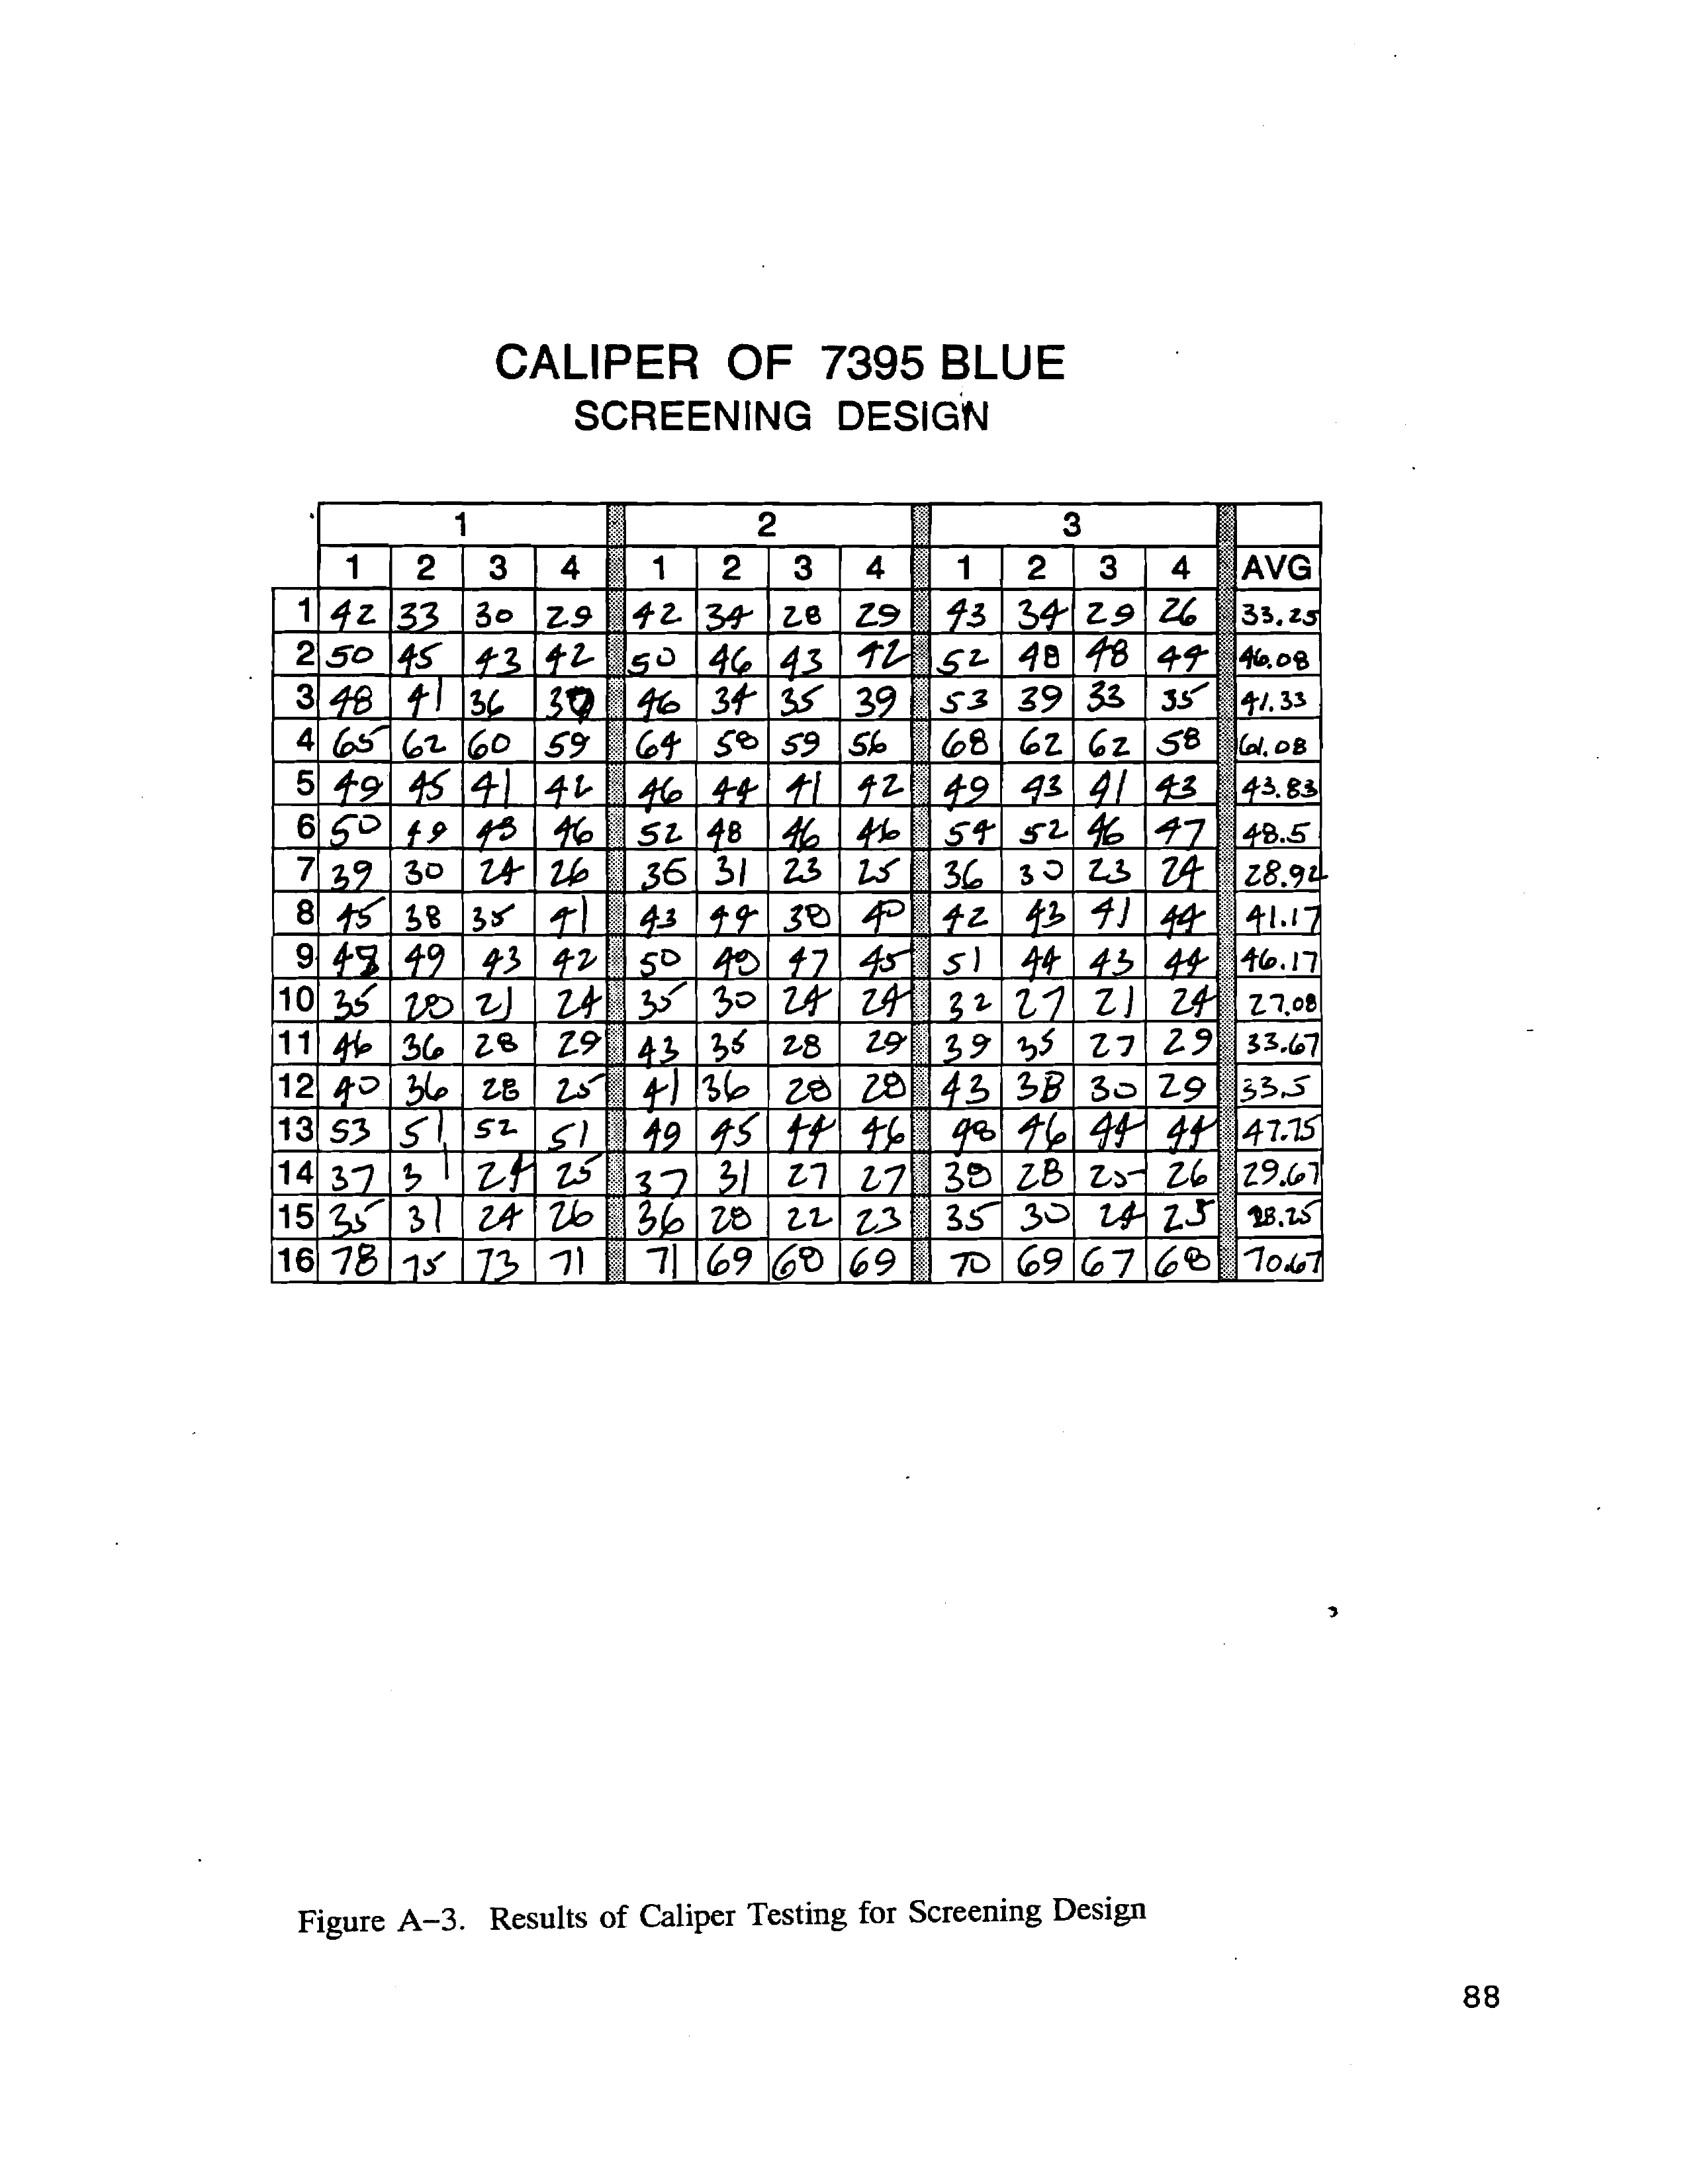 CALIPER OF 7395 BLUE
SCREENING DESIGN
1 2 3
1 2 3 4 1 2 3 4 1 2 3 4 AVG
1 42 33 30 29 42 34 28 29 43 34 29 26 33.25
2 50 45 43 42 50 46 43 42 52 48 48 44 46.08
3 48 41 36 46 34 35 39 53 39 33 35 41.33
4 65 62 60 59 64 58 59 56 68 62 62 58 61.08
5 49 45 41 42 46 44 41 42 49 43 41 43 43.83
6 50 49 48 46 52 48 46 46 54 52 46 47 48.5
7 39 30 24 26 36 31 23 25 36 30 23 24 28.92
8 45 38 38 41 43 44 38 40 42 43 41 44 41.17
9 48 49 43 42 50 48 47 45 51 44 43 44 46.17
10 35 28 21 24 35 30 24 24 32 27 21 24 27.08
11 46 36 28 29 43 35 28 29 39 35 27 29 33.67
12 40 36 28 25 41 36 28 28 43 38 30 29 33.5
13 53 51 52 51 49 45 44 46 48 46 44 44 47.75
14 37 31 24 25 37 31 27 27 38 28 25 26 29.67
15 35 31 24 26 36 28 22 23 35 30 24 25 28.25
16 78 75 73 71 71 69 68 69 70 69 67 68 70.67
Figure A-3. Results of Caliper Testing for Screening Design
88